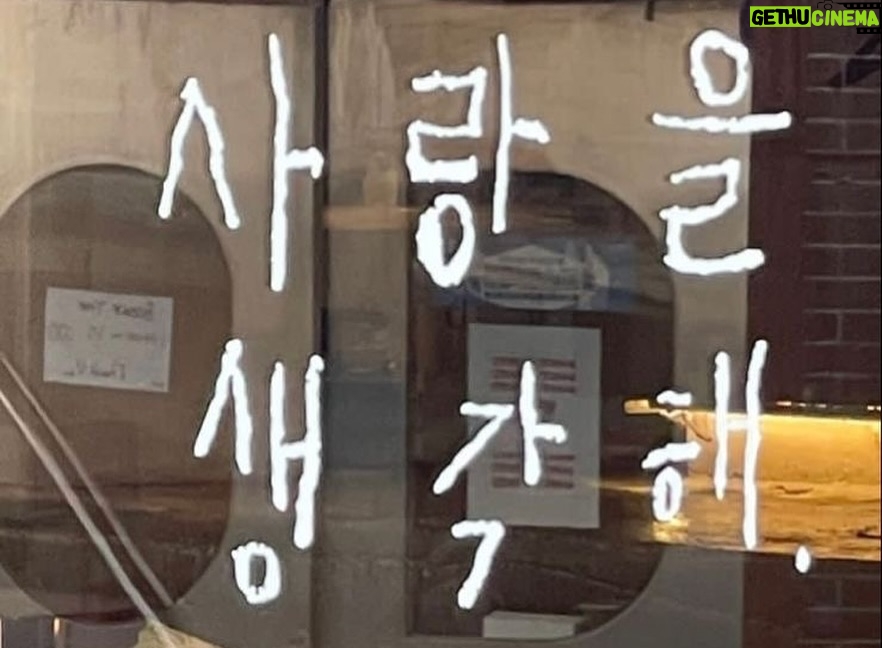 GETHU CINEMA
사랑을
생각해.